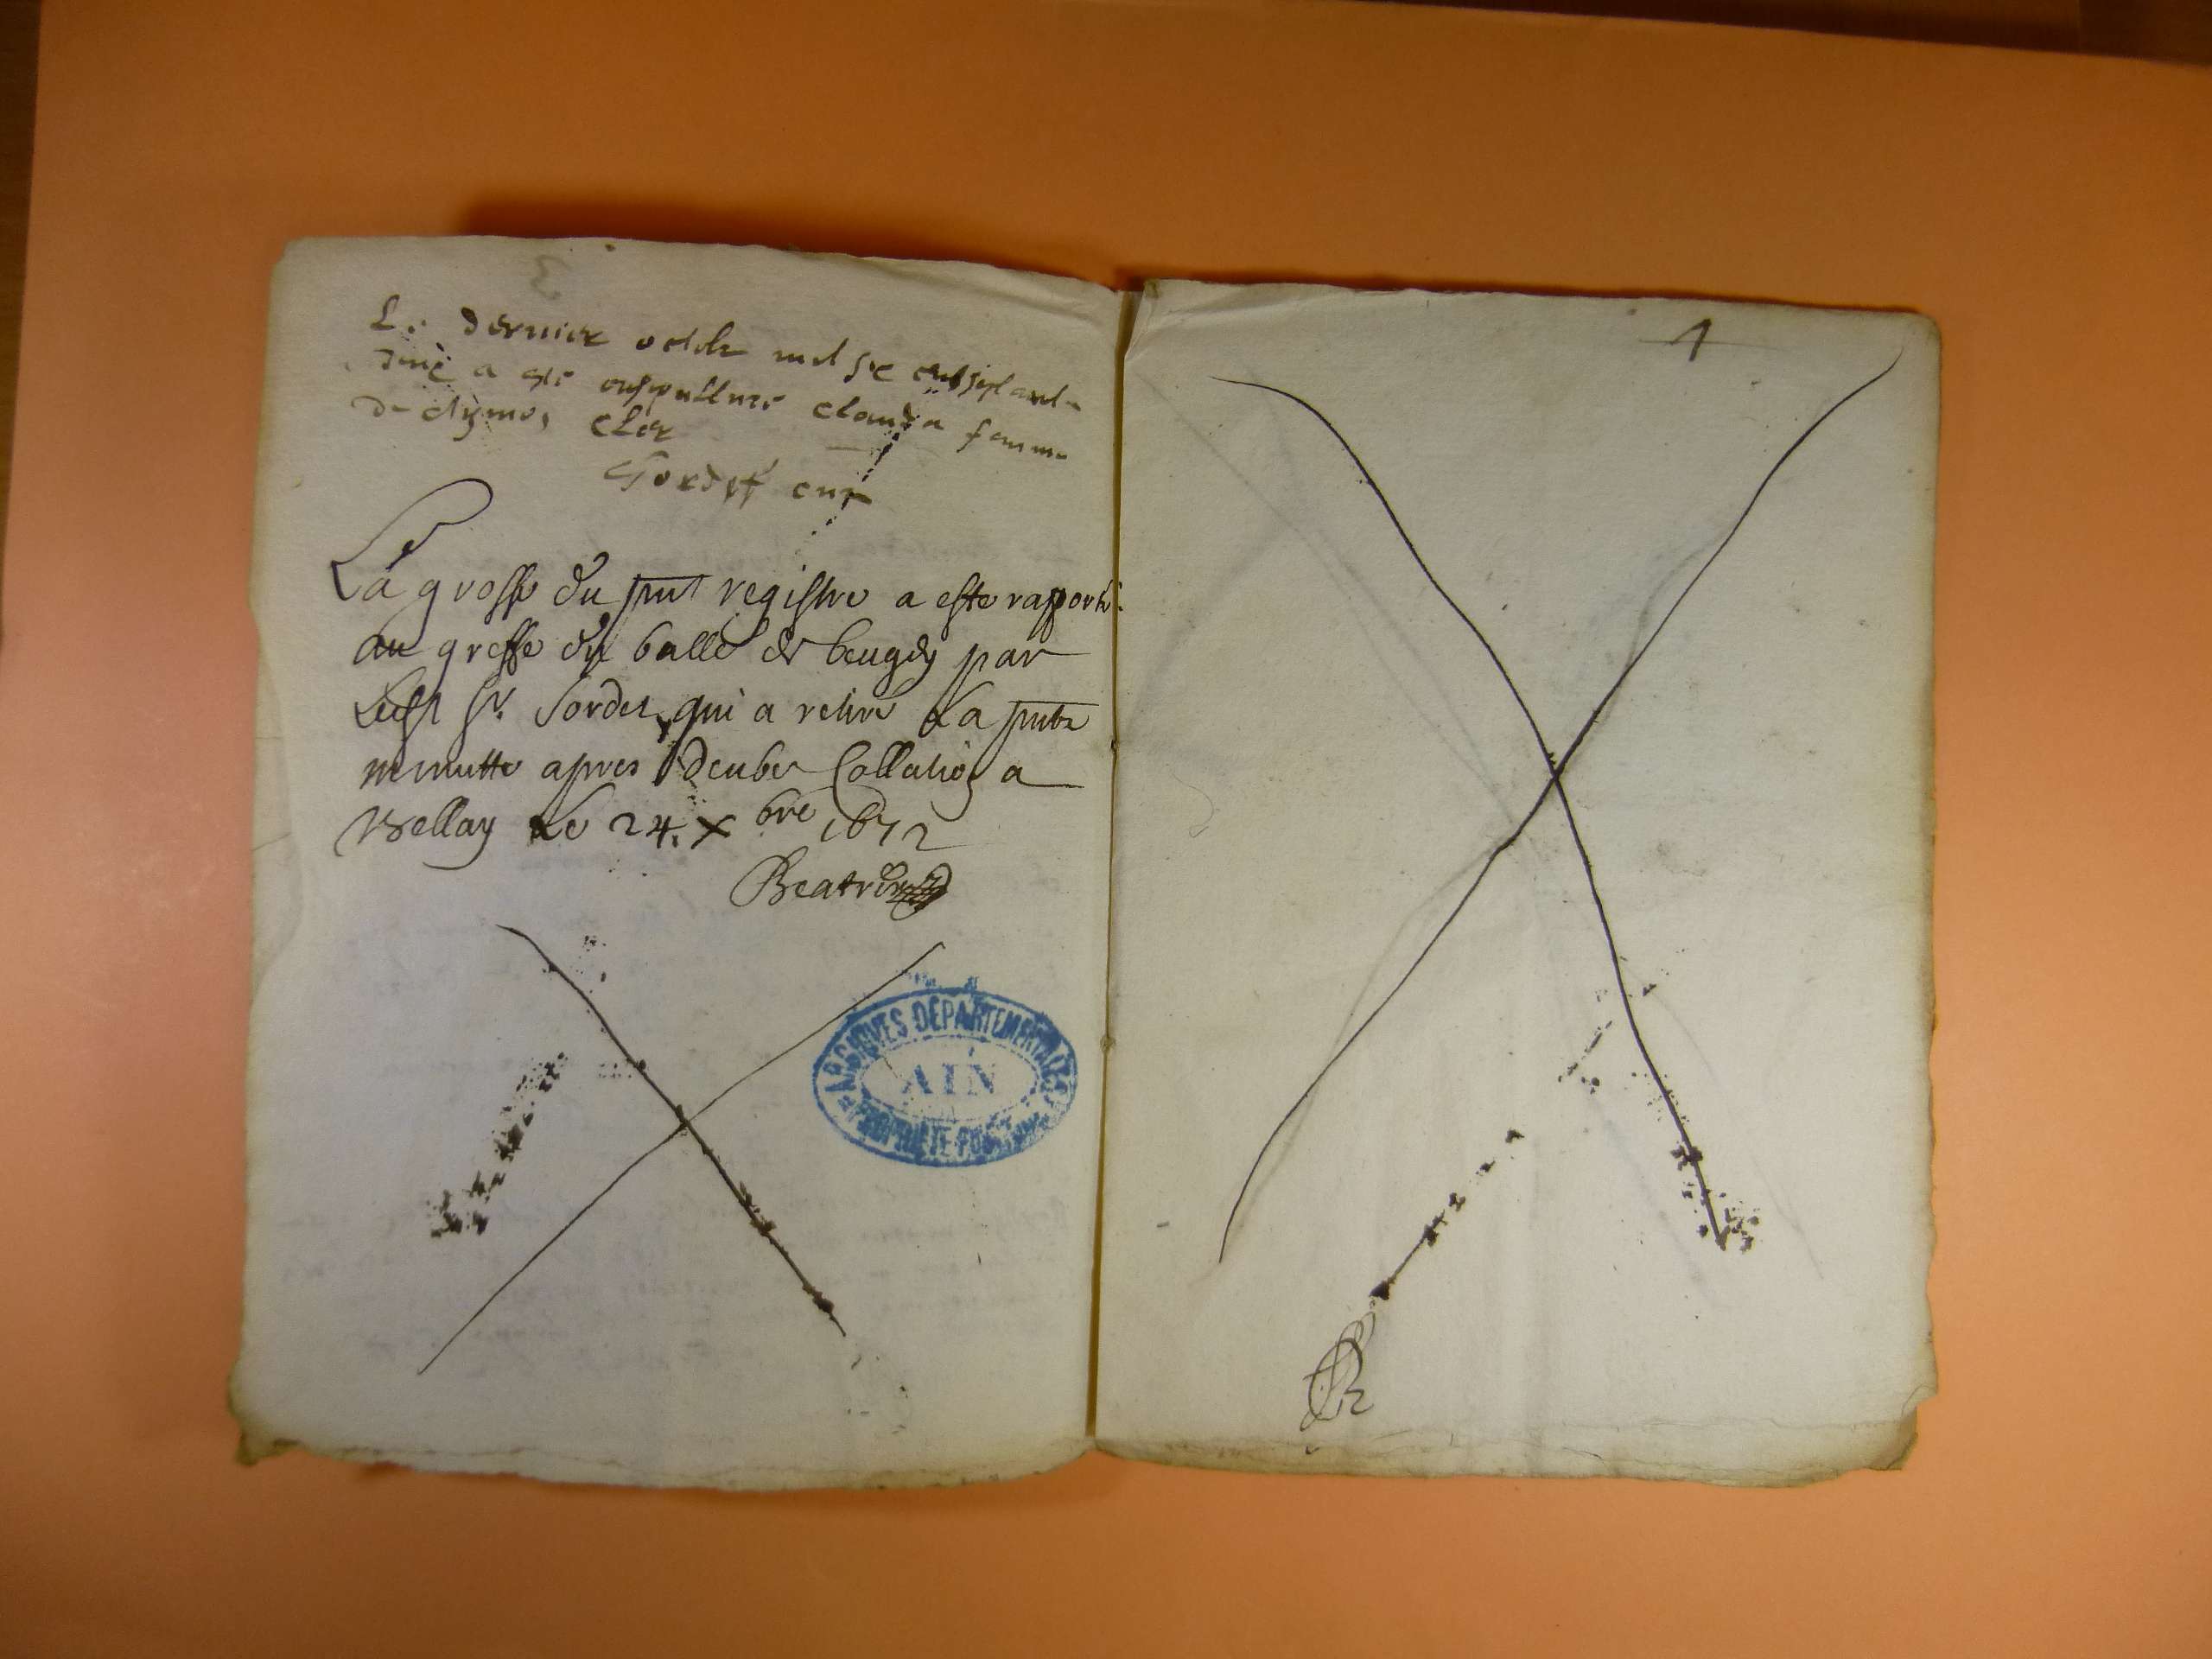 3
Le dernier octobr mil sic cent septante
deuc a esté ensepulture clauda femme
de clymos Cler
Sordet cure
La grosse du pnt registre a este rapporte
au greffe du balle de beugey par
Ledit Sr. Sordet qui a retire La pnte
minutte apres deube Collation a
Bellay Le 24. Xbre 1672
Beatrix
ARCHIVES DEPARTEMENTALES
AIN
PROPRIETE PUBLIQUE
4